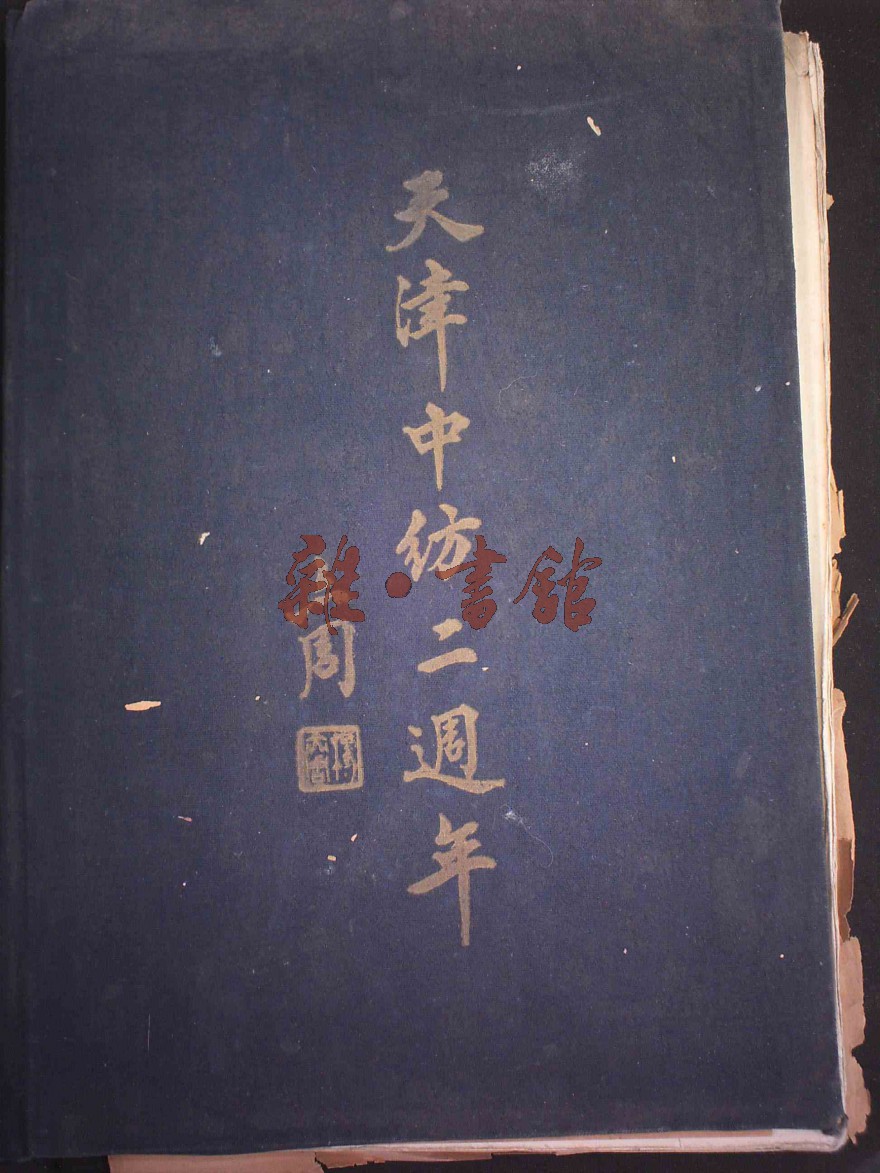 天津中紡二週年
周
雜·書館